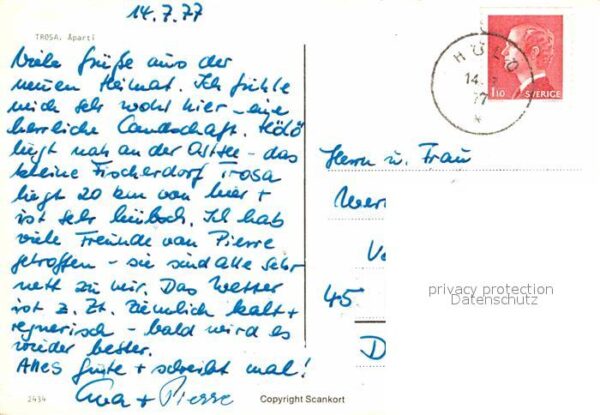 14.7.77
TROSA. Aparti
Viele Grüße aus der
neuen Heimat. Ich fühle
mich sehr wohl hier - eine
herrliche Landschaft. Hölö
liegt nah an der Ostsee - das
kleine Fischerdorf Trosa
liegt 20 km von hier +
ist sehr hübsch. Ich hab
viele Freunde von Pierre
getroffen - sie sind alle sehr
nett zu mir. Das Wetter
ist z. Zt. ziemlich kalt +
regnerisch - bald wird es
wieder besser.
Alles Gute + schreibt mal!
+ Pierre
2434
Copyright Scankort
HÖLÖ
14.
77
110 SVERIGE
Herrn u. Frau
45
D
privacy protection
Datenschutz